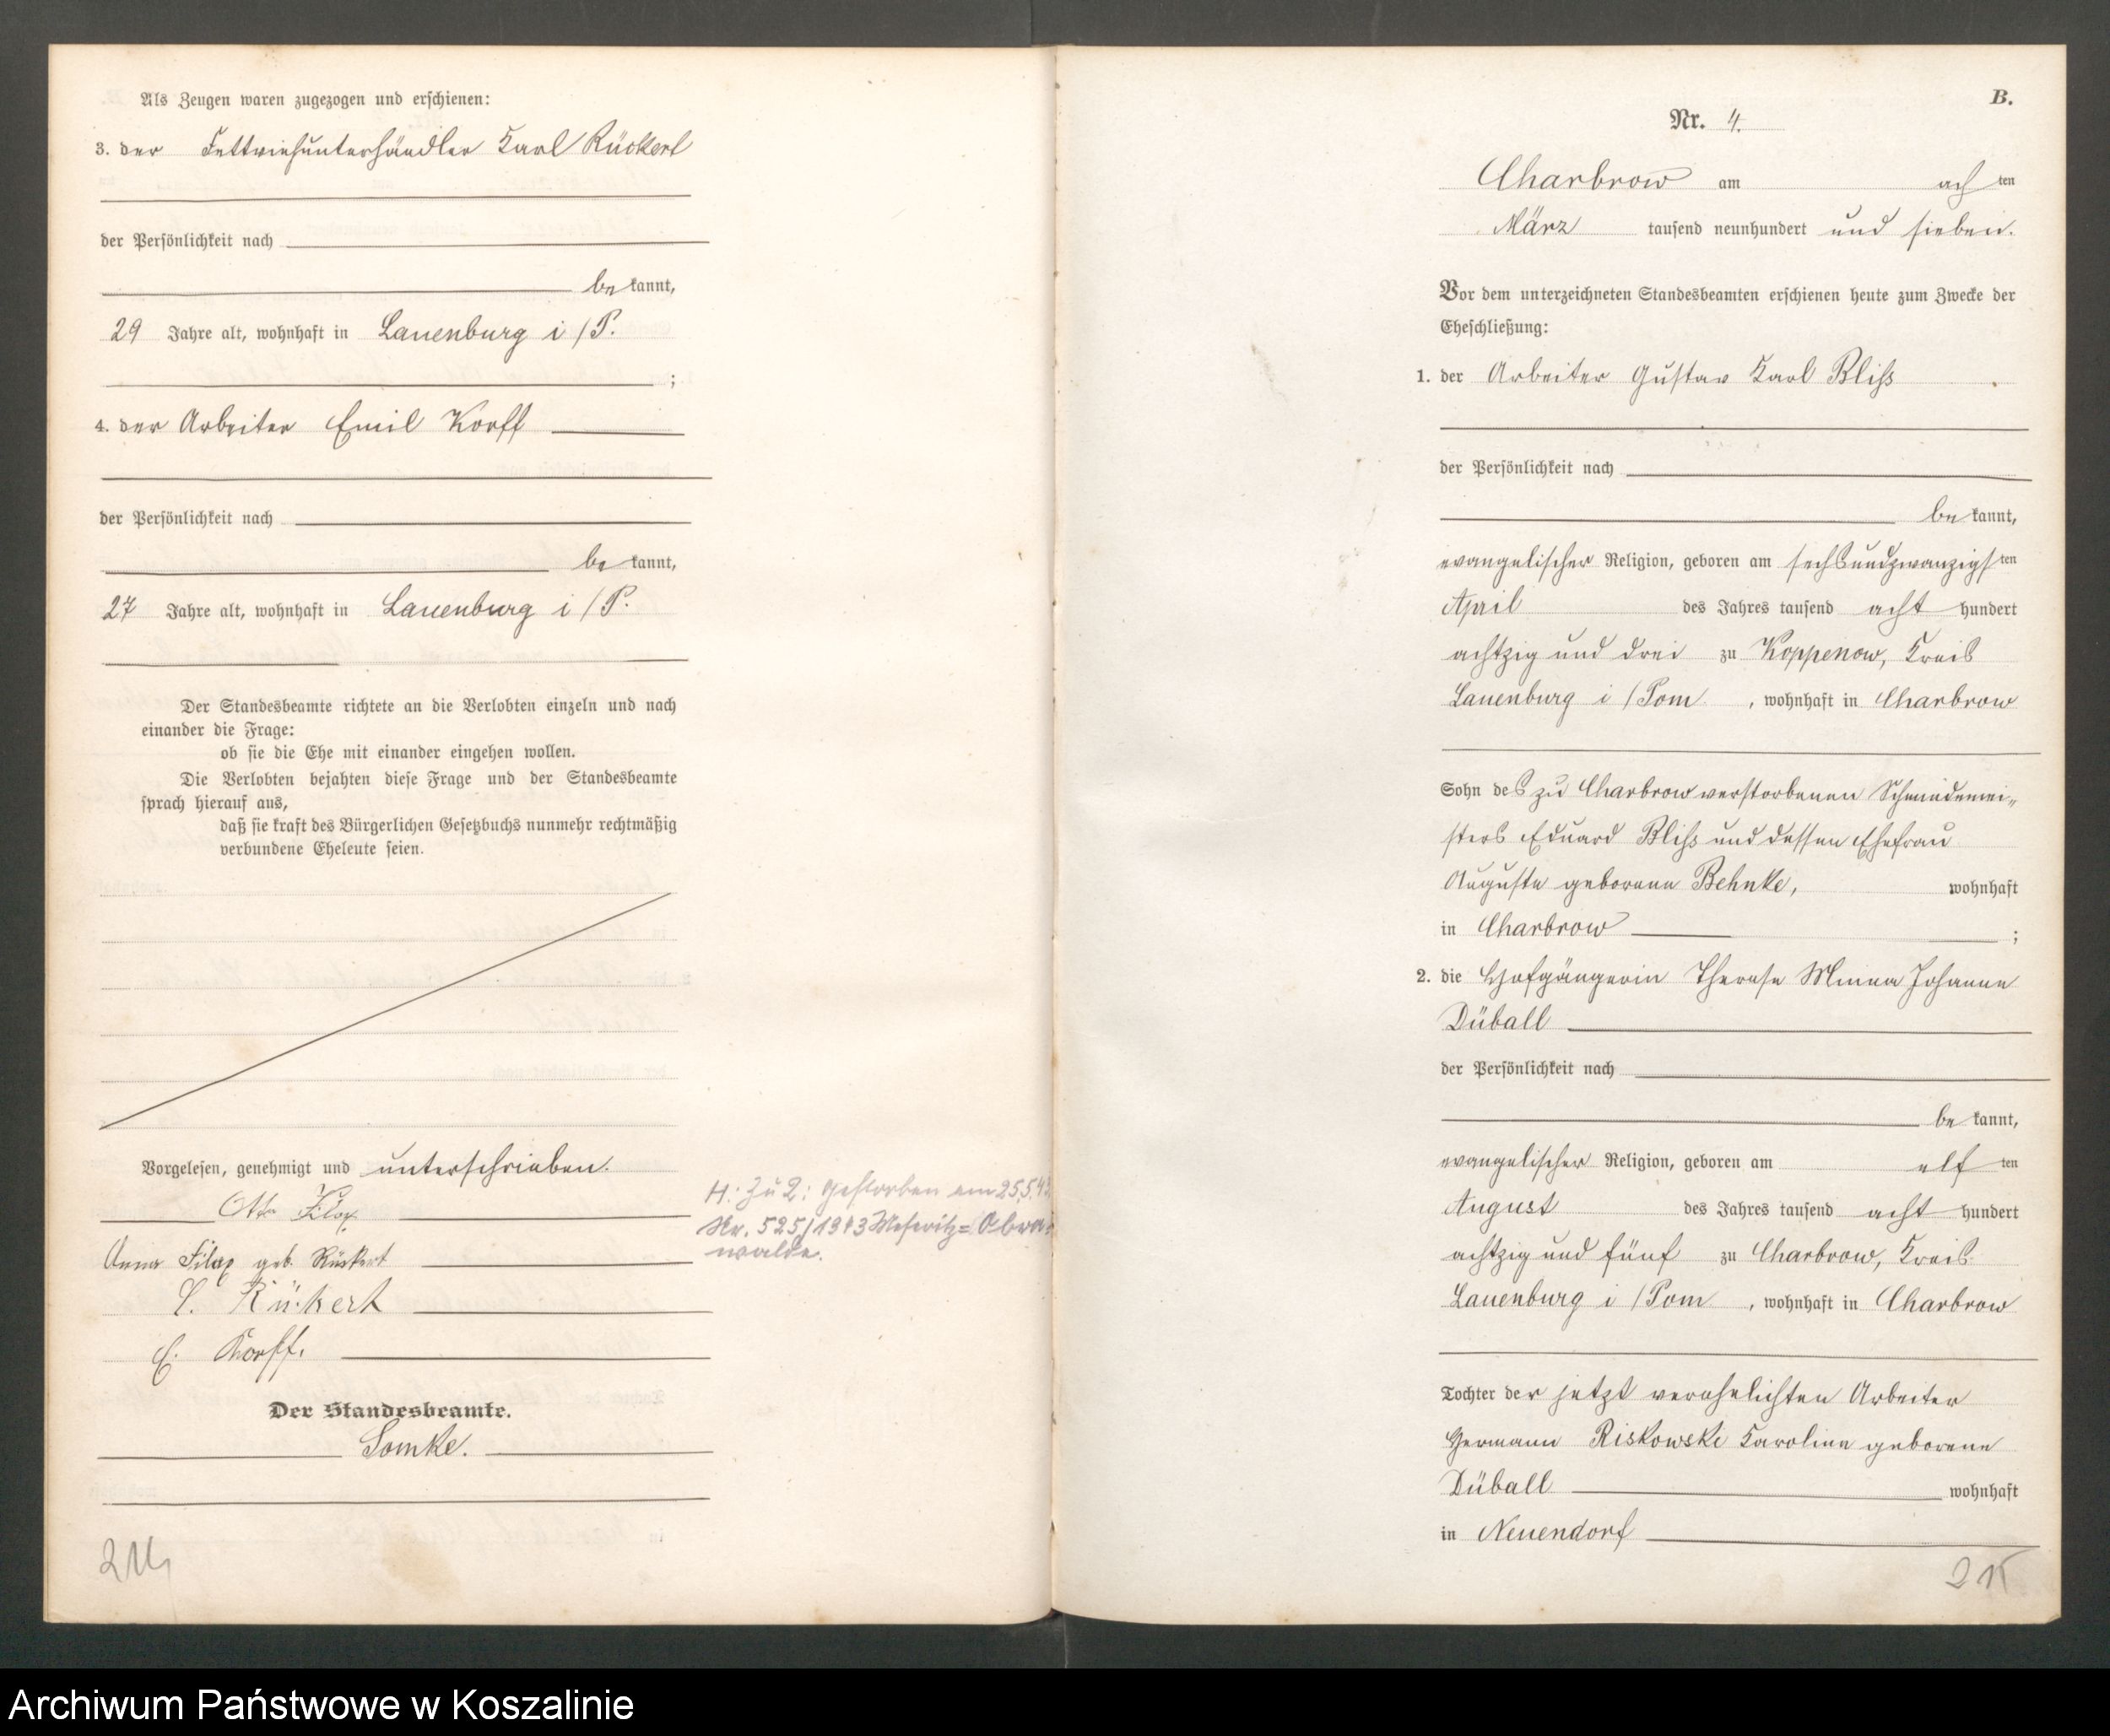 Als Zeugen waren zugezogen und erschienen:
3. der Fettviehunterhändler Karl Rückert
der Persönlichkeit nach
be kannt,
29 Jahre alt, wohnhaft in Lauenburg i/P.
;
4. der Arbeiter Emil Korff
der Persönlichkeit nach
be kannt,
27 Jahre alt, wohnhaft in Lauenburg i/P.
Der Standesbeamte richtete an die Verlobten einzeln und nach
einander die Frage:
ob sie die Ehe mit einander eingehen wollen.
Die Verlobten bejahten diese Frage und der Standesbeamte
sprach hierauf aus,
daß sie kraft des Bürgerlichen Gesetzbuchs nunmehr rechtmäßig
verbundene Eheleute seien.
Vorgelesen, genehmigt und unterschrieben.
Otto Filax
Anna Filax geb. Rückert
C. Rückert
E. Korff.
Der Standesbeamte.
Somke.
H: Zu 2: Gestorben am 25.5.43
Nr. 525/1943 Meseritz=Obra=
walde.
214
B.
Nr. 4.
Charbrow am ach ten
März tausend neunhundert und sieben.
Vor dem unterzeichneten Standesbeamten erschienen heute zum Zwecke der
Eheschließung:
1. der Arbeiter Gustav Karl Bliß
der Persönlichkeit nach
be kannt,
evangelischer Religion, geboren am sechsundzwanzigsten
April des Jahres tausend acht hundert
achtzig und drei zu Koppenow, Kreis
Lauenburg i/Pom, wohnhaft in Charbrow
Sohn des zu Charbrow verstorbenen Schmiedemei„
sters Eduard Bliß und dessen Ehefrau
Auguste geborene Behnke, wohnhaft
in Charbrow ;
2. die Hofgängerin Therese Minna Johanne
Düball
der Persönlichkeit nach
be kannt,
evangelischer Religion, geboren am elf ten
August des Jahres tausend acht hundert
achtzig und fünf zu Charbrow, Kreis
Lauenburg i/Pom, wohnhaft in Charbrow
Tochter der jetzt verehelichten Arbeiter
Hermann Riskowski Karoline geborene
Düball wohnhaft
in Neuendorf
215
Archiwum Państwowe w Koszalinie